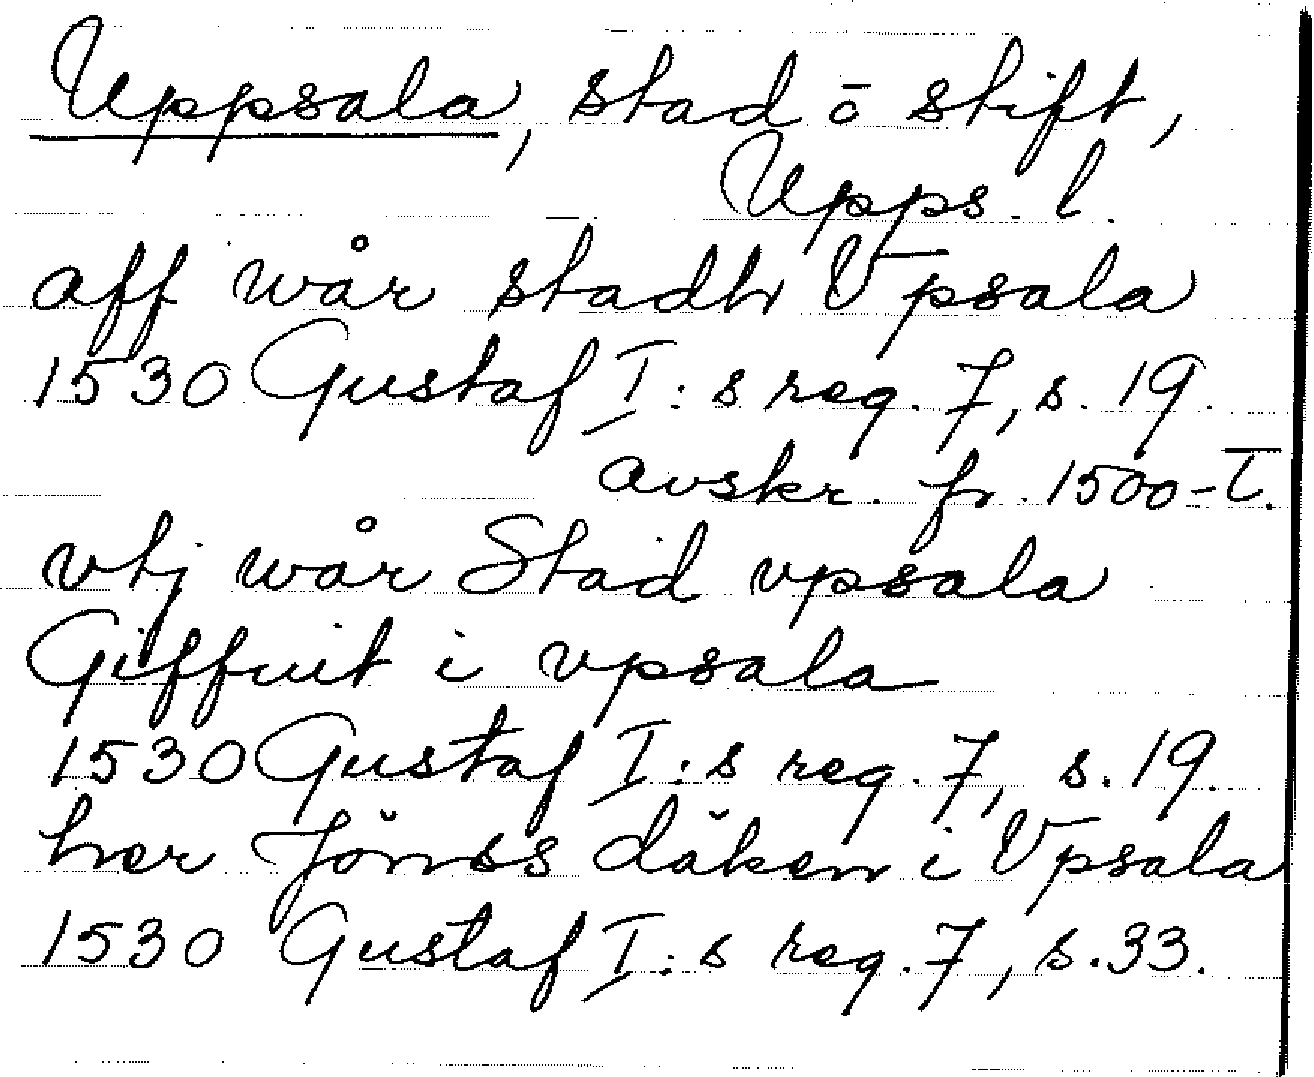 Uppsala, stad ō stift,
Upps. l.
aff wår stadh Vpsala
1530 Gustaf I:s reg. 7, s. 19.
avskr. fr. 1500-t.
vtj wår Stad vpsala
Giffuit i vpsala
1530 Gustaf I:s reg. 7, s. 19.
her Jönss däken i Vpsala
1530 Gustaf I:s reg. 7, s. 33.